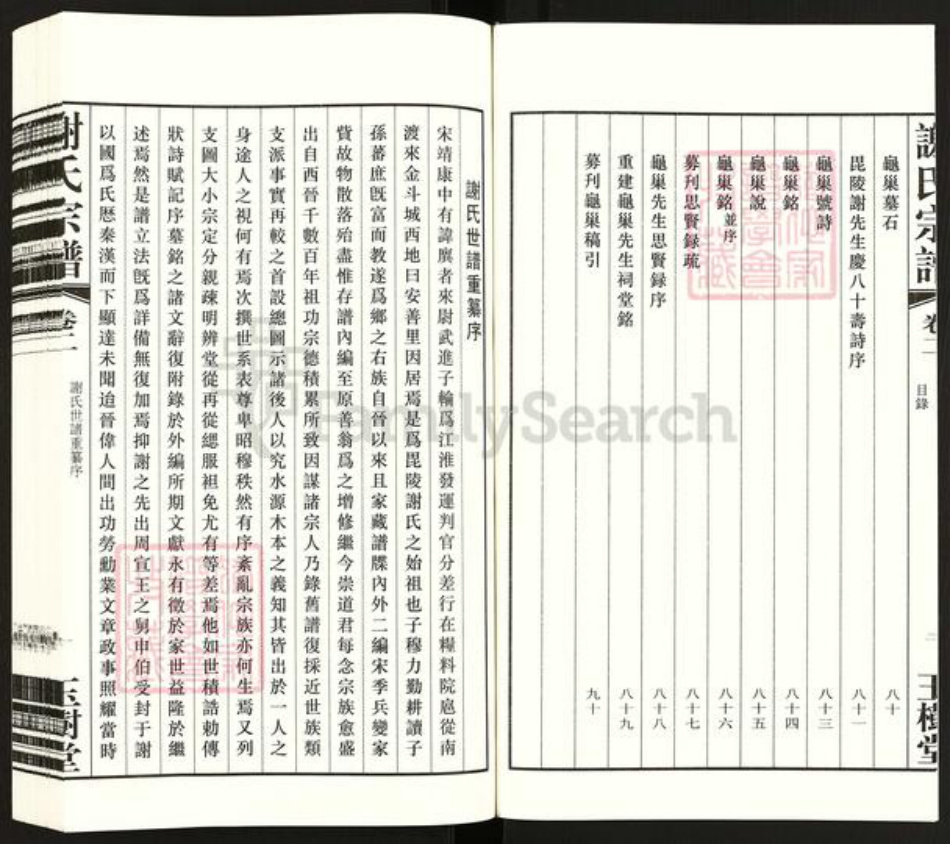 謝氏宗譜
卷二
目錄
玉樹堂
龜巢墓石 八十
毘陵謝先生慶八十壽詩序 八十一
龜巢號詩 八十三
龜巢銘 八十四
龜巢說 八十五
龜巢銘並序 八十六
募刊思賢録疏 八十七
龜巢先生思賢録序 八十八
重建龜巢先生祠堂銘 八十九
募刊龜巢稿引 九十
謝氏世譜重纂序
宋靖康中有諱廙者來尉武進子輪爲江淮發運判官分差行在糧料院扈從南
渡來金斗城西地曰安善里因居焉是爲毘陵謝氏之始祖也子穆力勤耕讀子
孫蕃庶旣富而教遂爲鄉之右族自晉以來且家藏譜牒內外二編宋季兵變家
貲故物散落殆盡惟存譜內編至原善翁爲之增修繼今崇道君每念宗族愈盛
出自西晉千數百年祖功宗德積累所致因謀諸宗人乃錄舊譜復採近世族類
支派事實再較之首設總圖示諸後人以究水源木本之義知其皆出於一人之
身途人之視何有焉次撰世系表尊卑昭穆秩然有序紊亂宗族亦何生焉又列
支圖大小宗定分親疎明辨堂從再從緦服袒免尤有等差焉他如世積誥勅傳
狀詩賦記序墓銘之諸文辭復附錄於外編所期文獻永有徵於家世益隆於繼
述焉然是譜立法旣爲詳備無復加焉抑謝之先出周宣王之舅申伯受封于謝
以國爲氏歷秦漢而下顯達未聞迨晉偉人間出功勞勳業文章政事照耀當時
謝氏宗譜
卷二
謝氏世譜重纂序
玉樹堂
FamilySearch